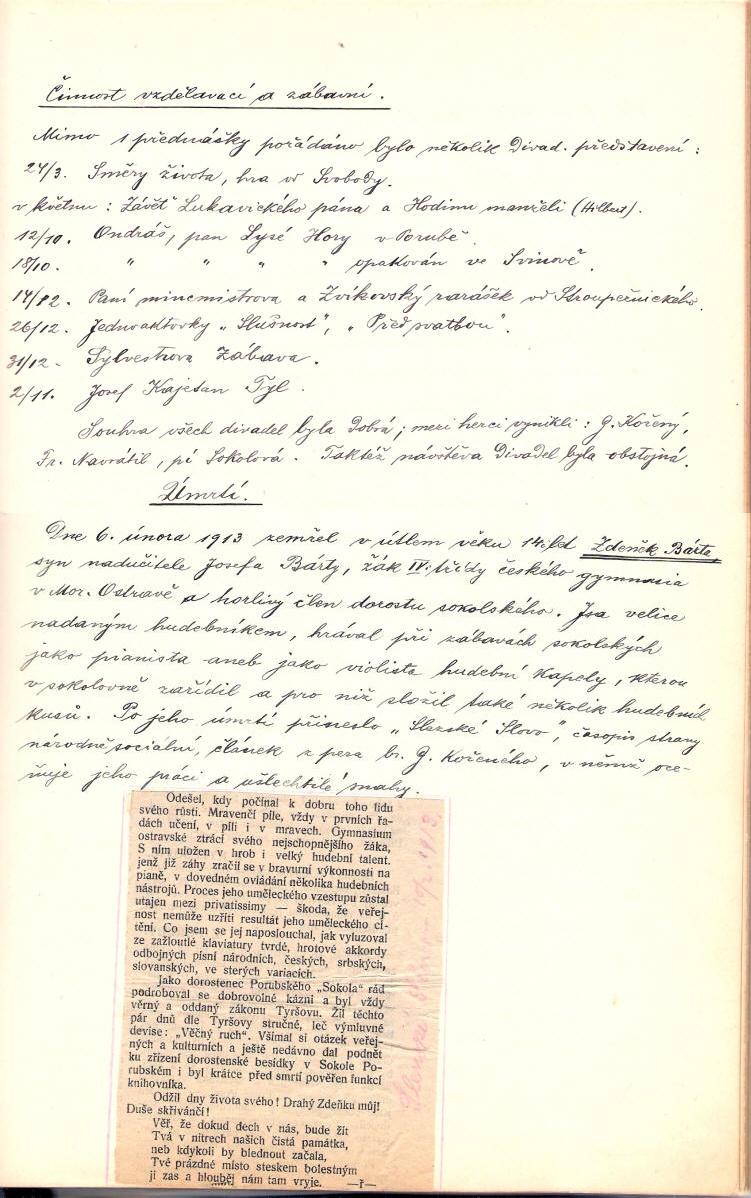 Činnost vzdělavací a zábavní.
Mimo 1 přednášky pořádáno bylo několik Divad. představení:
24/3. Směry života, hra od Svobody.
v květnu: Závěť Lukavického pána a Hodinu manželi (Hilbert).
12/10. Ondráš, pan Lysé Hory v Porubě.
18/10. " " " " opakován ve Svinově.
14/12. Paní mincmistrova a Zvíkovský rarášek od Stroupežnického.
26/12. Jednoaktovky „Slušnost", „Před svatbou".
31/12. Sylvestrova Zábava.
2/11. Josef Kajetan Tyl.
Souhra všech divadel byla Dobrá; mezi herci vynikli: G. Kořený,
Fr. Navrátil, pí Sokolová. Taktéž návštěva Divadel byla obstojná.
Úmrtí.
Dne 6. února 1913 zemřel v útlem věku 14i let Zdeněk Bárta,
syn nadučitele Josefa Bárty, žák IV. třídy českého gymnasia
v Mor. Ostravě a horlivý člen dorostu sokolského. Jsa velice
nadaným hudebníkem, hrával při zábavách sokolských
jako pianista aneb jako violista hudební kapely, kterou
v sokolovně zařídil a pro niž složil také několik hudebních
kusů. Po jeho úmrtí přineslo „Slezské Slovo", časopis strany
národně sociální, článek z pera br. G. Kořeného, v němž oce-
ňuje jeho práci a ušlechtilé snahy.
Odešel, kdy počínal k dobru toho lidu
svého růsti. Mravenčí píle, vždy v prvních řa-
dách učení, v píli i v mravech. Gymnasium
ostravské ztrácí svého nejschopnějšího žáka,
S ním uložen v hrob i velký hudební talent.
jenž již záhy zračil se v bravurní výkonnosti na
pianě, v dovedném ovládání několika hudebních
nástrojů. Proces jeho uměleckého vzestupu zůstal
utajen mezi privatissimy — škoda, že veřej-
nost nemůže uzříti resultát jeho uměleckého cí-
tění. Co jsem se jej naposlouchal, jak vyluzoval
ze zažloutlé klaviatury tvrdé, hrotové akkordy
odbojných písní národních, českých, srbských,
slovanských, ve sterých variacích.
Jako dorostenec Porubského „Sokola" rád
podroboval se dobrovolné kázni a byl vždy
věrný a oddaný zákonu Tyršovu. Žil těchto
pár dnů dle Tyršovy stručné, leč výmluvné
devise: „Věčný ruch". Všímal si otázek veřej-
ných a kulturních a ještě nedávno dal podnět
ku zřízení dorostenské besídky v Sokole Po-
rubském i byl krátce před smrtí pověřen funkcí
knihovníka.
Odžil dny života svého! Drahý Zdeňku můj!
Duše skřivánčí!
Věř, že dokud dech v nás, bude žít
Tvá v nitrech našich čistá památka,
neb kdykoli by blednout začala,
Tvé prázdné místo steskem bolestným
ji zas a hlouběj nám tam vryje. —ř—